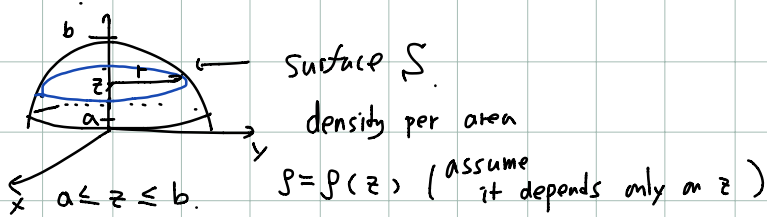 b
r
z
a
y
x
a ≤ z ≤ b.
surface S.
density per area
ρ = ρ(z) (assume it depends only on z)